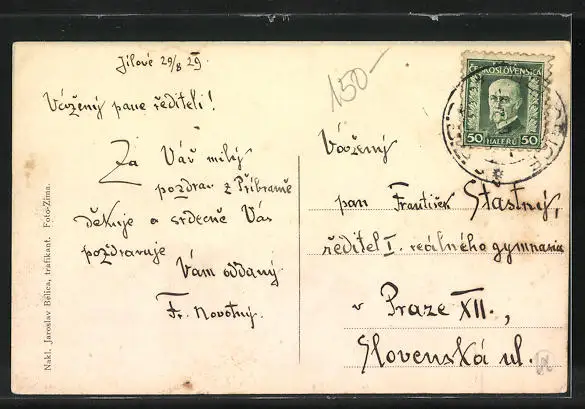 Jílové 29/8 29.
Vážený pane řediteli!
Za Váš milý
pozdrav z Příbramě
děkuje a srdečně Vás
pozdravuje
Vám oddaný
Fr. Novotný.
150-
ČESKOSLOVENSKO
50 HALÉŘŮ 50
Vážený
pan František Šťastný,
ředitel I. reálného gymnasia
v Praze XII.,
Slovenská ul.
Nakl. Jaroslav Bělica, trafikant. Foto-Zima.